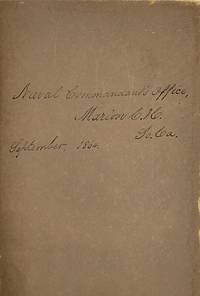 Naval Commandant's Office,
Marion C.H.
So. Ca.
September, 1864.